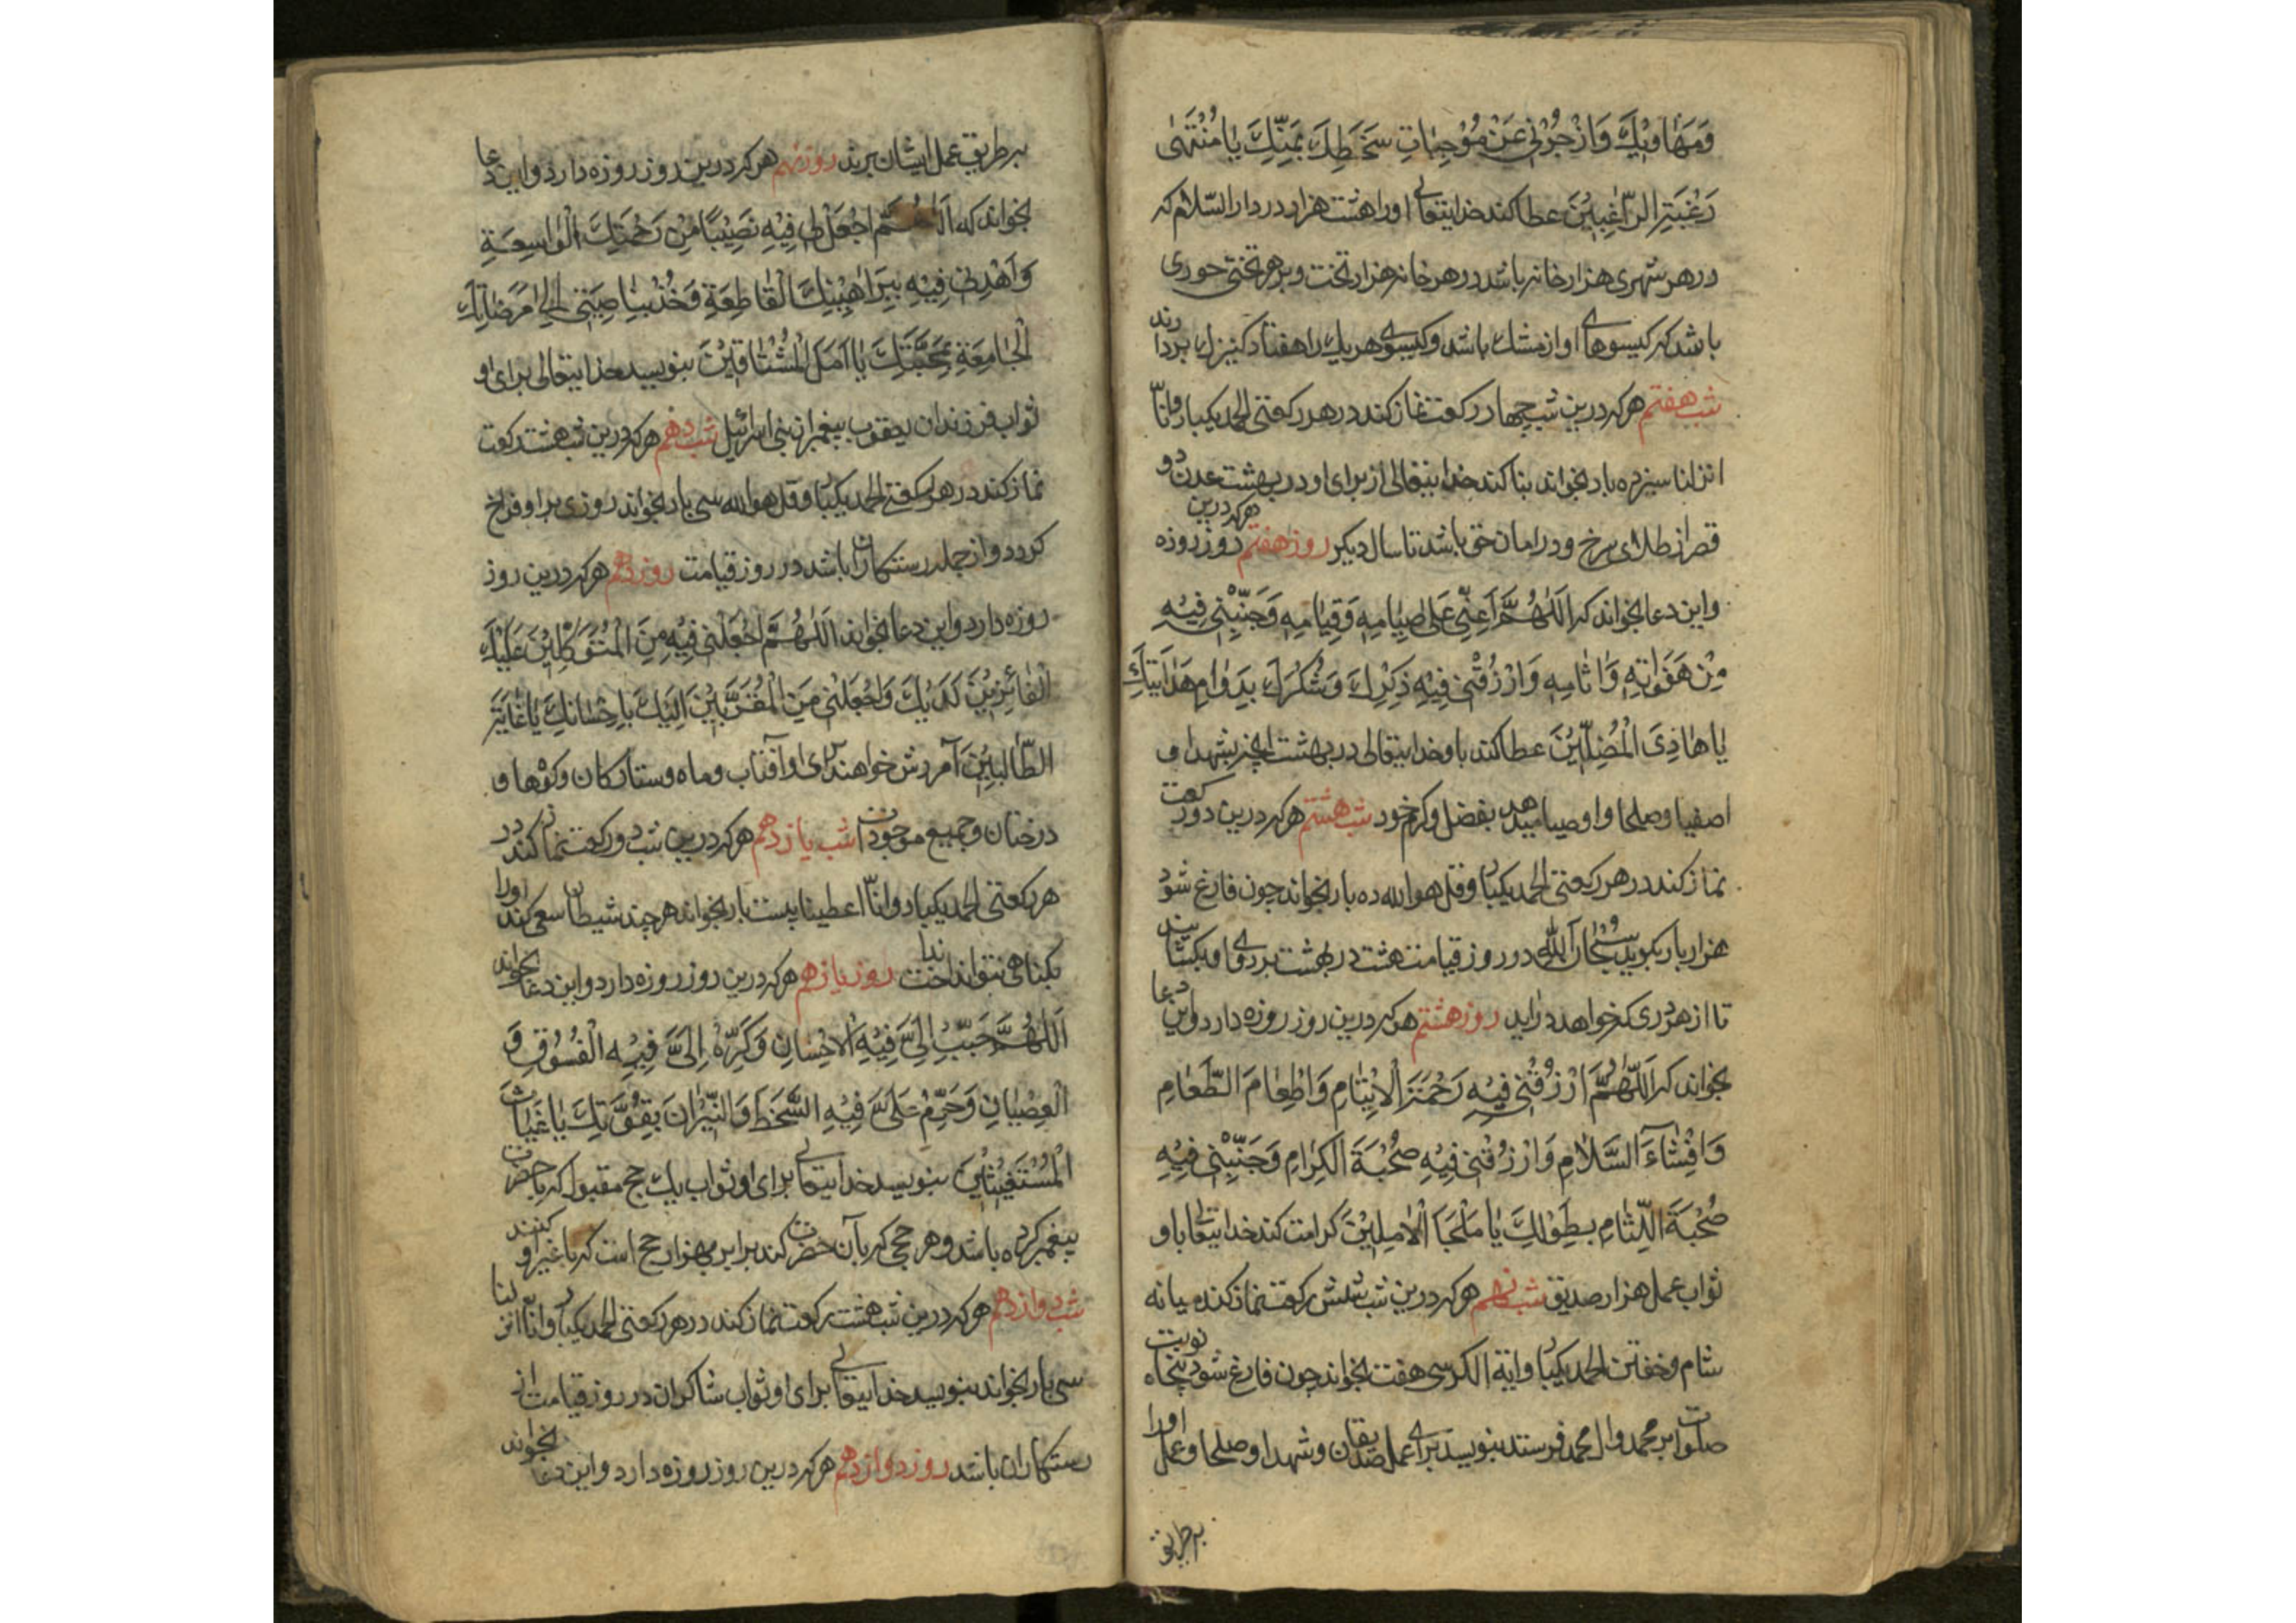 وَمَهَاوِيْكَ وَازْجُرْنِي عَنْ مُوْجِبٰاتِ سَخَطِكَ بِمَنِّكَ يٰا مُنْتَهٰى
رَغْبَتِ الرّٰاغِبِيْنَ عطا کند خدایتعالی اورا هشت هزار در دار السّلام که
در هر شهری هزار خانه باشد در هر خانه هزار تخت و بر هر تختی حوری
باشد که کیسوهای او از مشك باشد و کیسوی هریك را هفتاد کنیزك بردارند
شب هفتم هرکه درین شب چهار رکعت نماز کند در هر رکعتی الحمد یکبار و انّا
انزلنا سیزده بار بخواند بنا کند خدایتعالی از برای او در بهشت عدن دو
قصر از طلای سرخ و در امان حق باشد تا سال دیکر روز هفتم هرکه درین روز روزه
و این دعا بخواند که اَللّٰهُمَّ اَعِنِّي عَلٰى صِيٰامِهِ وَقِيٰامِهِ وَجَنِّبْنِي فِيْهِ
مِنْ هَفَوٰاتِهِ وَاٰثٰامِهِ وَارْزُقْنِي فِيْهِ ذِكْرِكَ وَشُكْرِكَ بِدَوٰامِ هَدٰايَتِكَ
يٰا هٰادِيَ الْمُضِلِّيْنَ عطا کند باو خدایتعالی در بهشت انچه بشهدا و
اصفیا و صلحا و اوصیا میدهد بفضل و کرم خود شب هشتم هرکه درین دو رکعت
نماز کند در هر رکعتی الحمد یکبار و قل هو الله ده بار بخواند چون فارغ شود
هزار بار بکوید سُبْحٰانَ اللّٰهِ در روز قیامت هشت در بهشت بر روی او بکشایند
تا از هر دری که خواهد در اید روز هشتم هرکه درین روز روزه دارد و این دعا
بخواند که اَللّٰهُمَّ ارْزُقْنِي فِيْهِ رَحْمَةَ الْاَيْتٰامِ وَاِطْعٰامَ الطَّعٰامِ
وَاِفْشٰاءَ السَّلٰامِ وَارْزُقْنِي فِيْهِ صُحْبَةَ الْكِرٰامِ وَجَنِّبْنِي فِيْهِ
صُحْبَةَ اللِّئٰامِ بِطَوْلِكَ يٰا مَلْجَاَ الْاٰمِلِيْنَ کرامت کند خدایتعالی باو
ثواب عمل هزار صدیق شب نهم هرکه درین شب شش رکعت نماز کند میانه
شام و خفتن الحمد یکبار و ایة الکرسی هفت بخواند چون فارغ شود پنجاه نوبت
صلوات بر محمد و ال محمد فرستد بنویسد برای عمل صدیقان و شهدا و صلحا و عمل اورا
بر طریق
بر طریق عمل ایشان برند روز نهم هرکه درین روز روزه دارد و این دعا
بخواند که اَللّٰهُمَّ اجْعَلْ لِي فِيْهِ نَصِيْبًا مِنْ رَحْمَتِكَ الْوٰاسِعَةِ
وَاَهْدِنِي فِيْهِ بِبَرٰاهِيْنِكَ الْقٰاطِعَةِ وَخُذْ بِنٰاصِيَتِي اِلٰى مَرْضٰاتِكَ
الْجٰامِعَةِ بِمَحَبَّتِكَ يٰا اَمَلَ الْمُشْتٰاقِيْنَ بنویسد خدایتعالی برای او
ثواب فرزندان یعقوب پیغمبران بنی اسرائیل شب دهم هرکه درین شب هشت رکعت
نماز کند در هر رکعتی الحمد یکبار و قل هو الله سی بار بخواند روزی بر او فراخ
کردد و از جمله رستکاران باشد در روز قیامت روز دهم هرکه درین روز
روزه دارد و این دعا بخواند اَللّٰهُمَّ اجْعَلْنِي فِيْهِ مِنَ الْمُتَوَكِّلِيْنَ عَلَيْكَ
الْفٰائِزِيْنَ لَدَيْكَ وَاجْعَلْنِي مِنَ الْمُقَرَّبِيْنَ اِلَيْكَ بِاِحْسٰانِكَ يٰا غٰايَةَ
الطّٰالِبِيْنَ آمرزش خواهند برای او آفتاب و ماه و ستارکان و کوهها و
درختان و جمیع موجودات شب یازدهم هرکه درین شب دو رکعت نماز کند در
هر رکعتی الحمد یکبار و انّا اعطینا بیست بار بخواند هرچند شیطان سعی کند اورا
بکناهی نتواند انداخت روز یازدهم هرکه درین روز روزه دارد و این دعا بخواند
اَللّٰهُمَّ حَبِّبْ اِلَيَّ فِيْهِ الْاِحْسٰانِ وَكَرِّهْ اِلَيَّ فِيْهِ الْفُسُوْقِ وَ
الْعِصْيٰانِ وَحَرِّمْ عَلَيَّ فِيْهِ السَّخَطَ وَالنِّيْرٰانَ بِقُوَّتِكَ يٰا غِيٰاثَ
الْمُسْتَغِيْثِيْنَ بنویسد خدایتعالی برای او ثواب یك حج مقبول که با حضرت
پیغمبر کرده باشد و هر حجی که بآن حضرت کند برابر هزار حج است که با غیر او کنند
شب دوازدهم هرکه درین شب هشت رکعت نماز کند در هر رکعتی الحمد یکبار و انا انزلنا
سی بار بخواند بنویسد خدایتعالی برای او ثواب شاکران در روز قیامت از
رستکاران باشد روز دوازدهم هرکه درین روز روزه دارد و این دعا بخواند